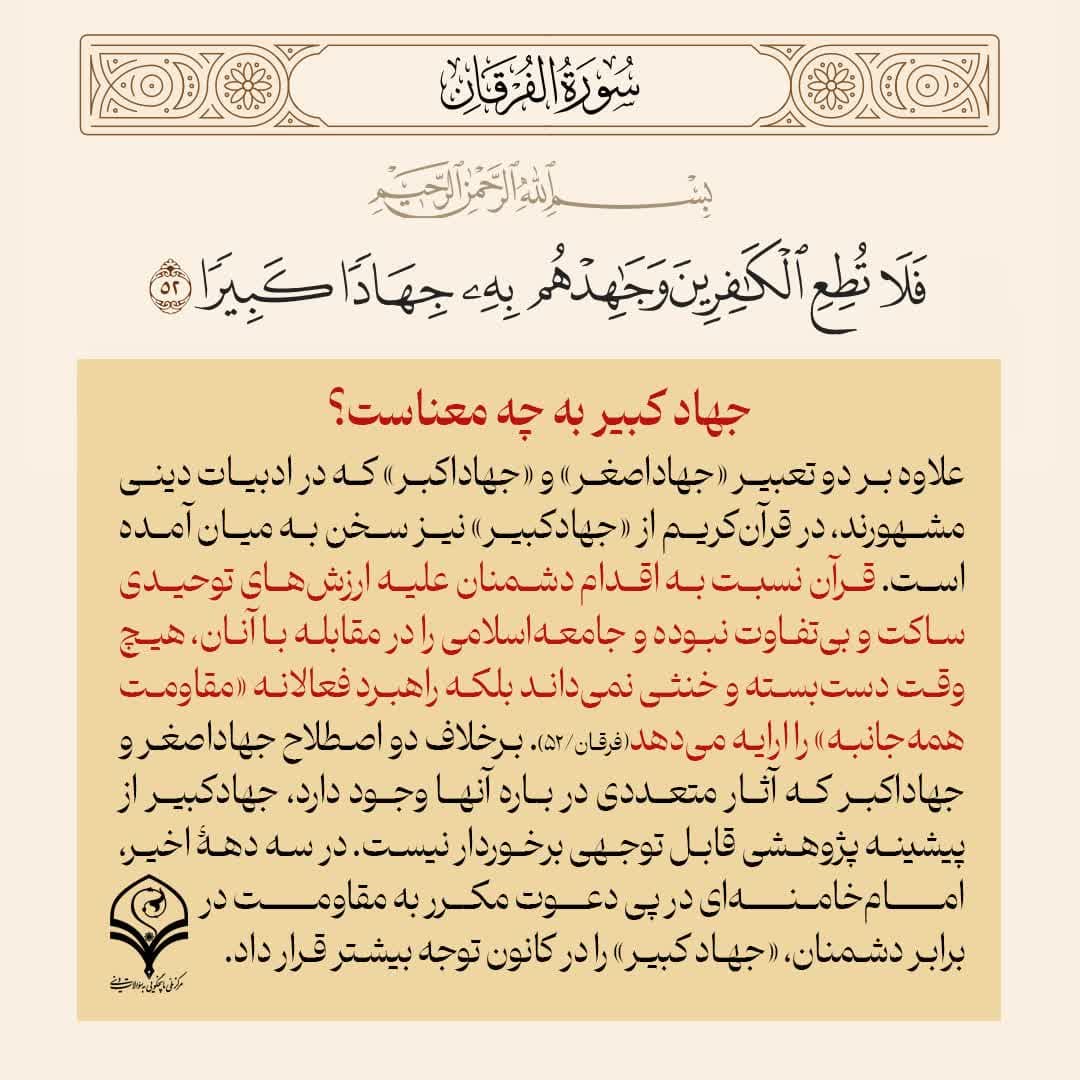 سُورَةُ الفُرْقَانِ
بِسْمِ ٱللَّهِ ٱلرَّحْمَٰنِ ٱلرَّحِيمِ
فَلَا تُطِعِ ٱلْكَٰفِرِينَ وَجَٰهِدْهُم بِهِۦ جِهَادًا كَبِيرًا ٥٢
جهاد کبیر به چه معناست؟
علاوه بر دو تعبیر «جهاداصغر» و «جهاداکبر» که در ادبیات دینی
مشهورند، در قرآن‌کریم از «جهادکبیر» نیز سخن به میان آمده
است. قرآن نسبت به اقدام دشمنان علیه ارزش‌های توحیدی
ساکت و بی‌تفاوت نبوده و جامعه‌اسلامی را در مقابله با آنان، هیچ
وقت دست‌بسته و خنثی نمی‌داند بلکه راهبرد فعالانه «مقاومت
همه‌جانبه» را ارایه می‌دهد(فرقان/۵۲). برخلاف دو اصطلاح جهاداصغر و
جهاداکبر که آثار متعددی در باره آنها وجود دارد، جهادکبیر از
پیشینه پژوهشی قابل توجهی برخوردار نیست. در سه دههٔ اخیر،
امام‌خامنه‌ای در پی دعوت مکرر به مقاومت در
برابر دشمنان، «جهاد کبیر» را در کانون توجه بیشتر قرار داد.
مرکز ملی پاسخگویی به سؤالات دینی